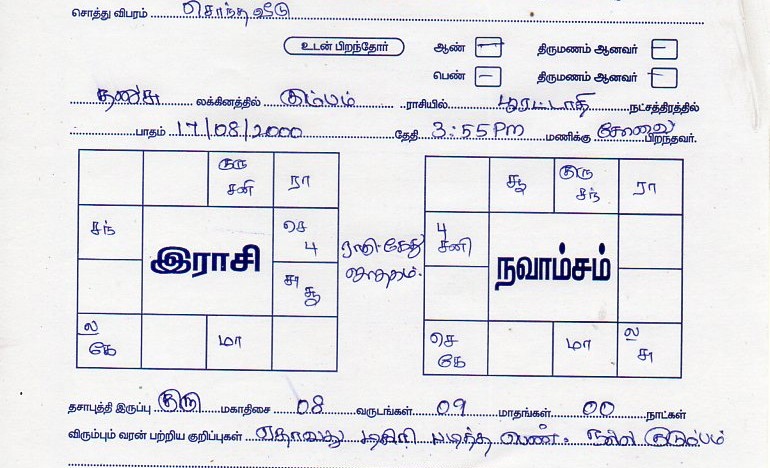 சொத்து விபரம் சொந்த வீடு
உடன் பிறந்தோர் ஆண் – திருமணம் ஆனவர் –
பெண் – திருமணம் ஆனவர் –
தனுசு லக்கினத்தில் கும்பம் ராசியில் பூரட்டாதி நட்சத்திரத்தில்
பாதம் 17/08/2000 தேதி 3:55 PM மணிக்கு சேலை பிறந்தவர்.
குரு சனி ரா
சந்
செ 4
சு சூ
இராசி
ல கே மா
ராகு கேது ஜாதகம்.
சூ குரு சந் ரா
4 சனி
நவாம்சம்
செ கே மா ல சு
தசாபுத்தி இருப்பு குரு மகாதிசை 08 வருடங்கள் 09 மாதங்கள் 00 நாட்கள்
விரும்பும் வரன் பற்றிய குறிப்புகள் ஏதாவது டிகிரி படித்த பெண். நல்ல குடும்பம்